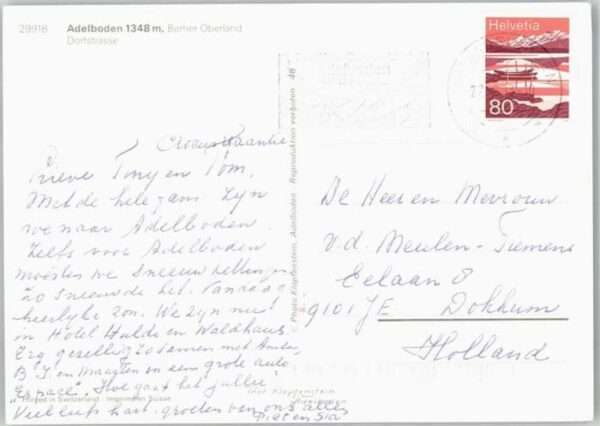 29916
Adelboden 1348 m, Berner Oberland
Dorfstrasse
Helvetia
80
Lieve Tony en Tom,
Met de hele gans zyn
we naar Adelboden
Zelfs voor Adelboden
moesten we sneeuwkettingen
zo sneeuwde het. Vandaag
heerlyke zon. We zyn nu
in Hotel Huldi en Waldhaus
Erg gezellig zo samen met
B en Maarten en een grote auto
"Espace". Hoe gaat het jullie
Veel liefs hart. groeten van ons allen
Piet en Sia
Printed in Switzerland · Imprimé en Suisse
© Photo Klopfenstein, Adelboden Reproduktion verboten 46
De Heer en Mevrouw
v.d. Meulen - Tiemens
Eelaan 8
9101 JE Dokkum
Holland